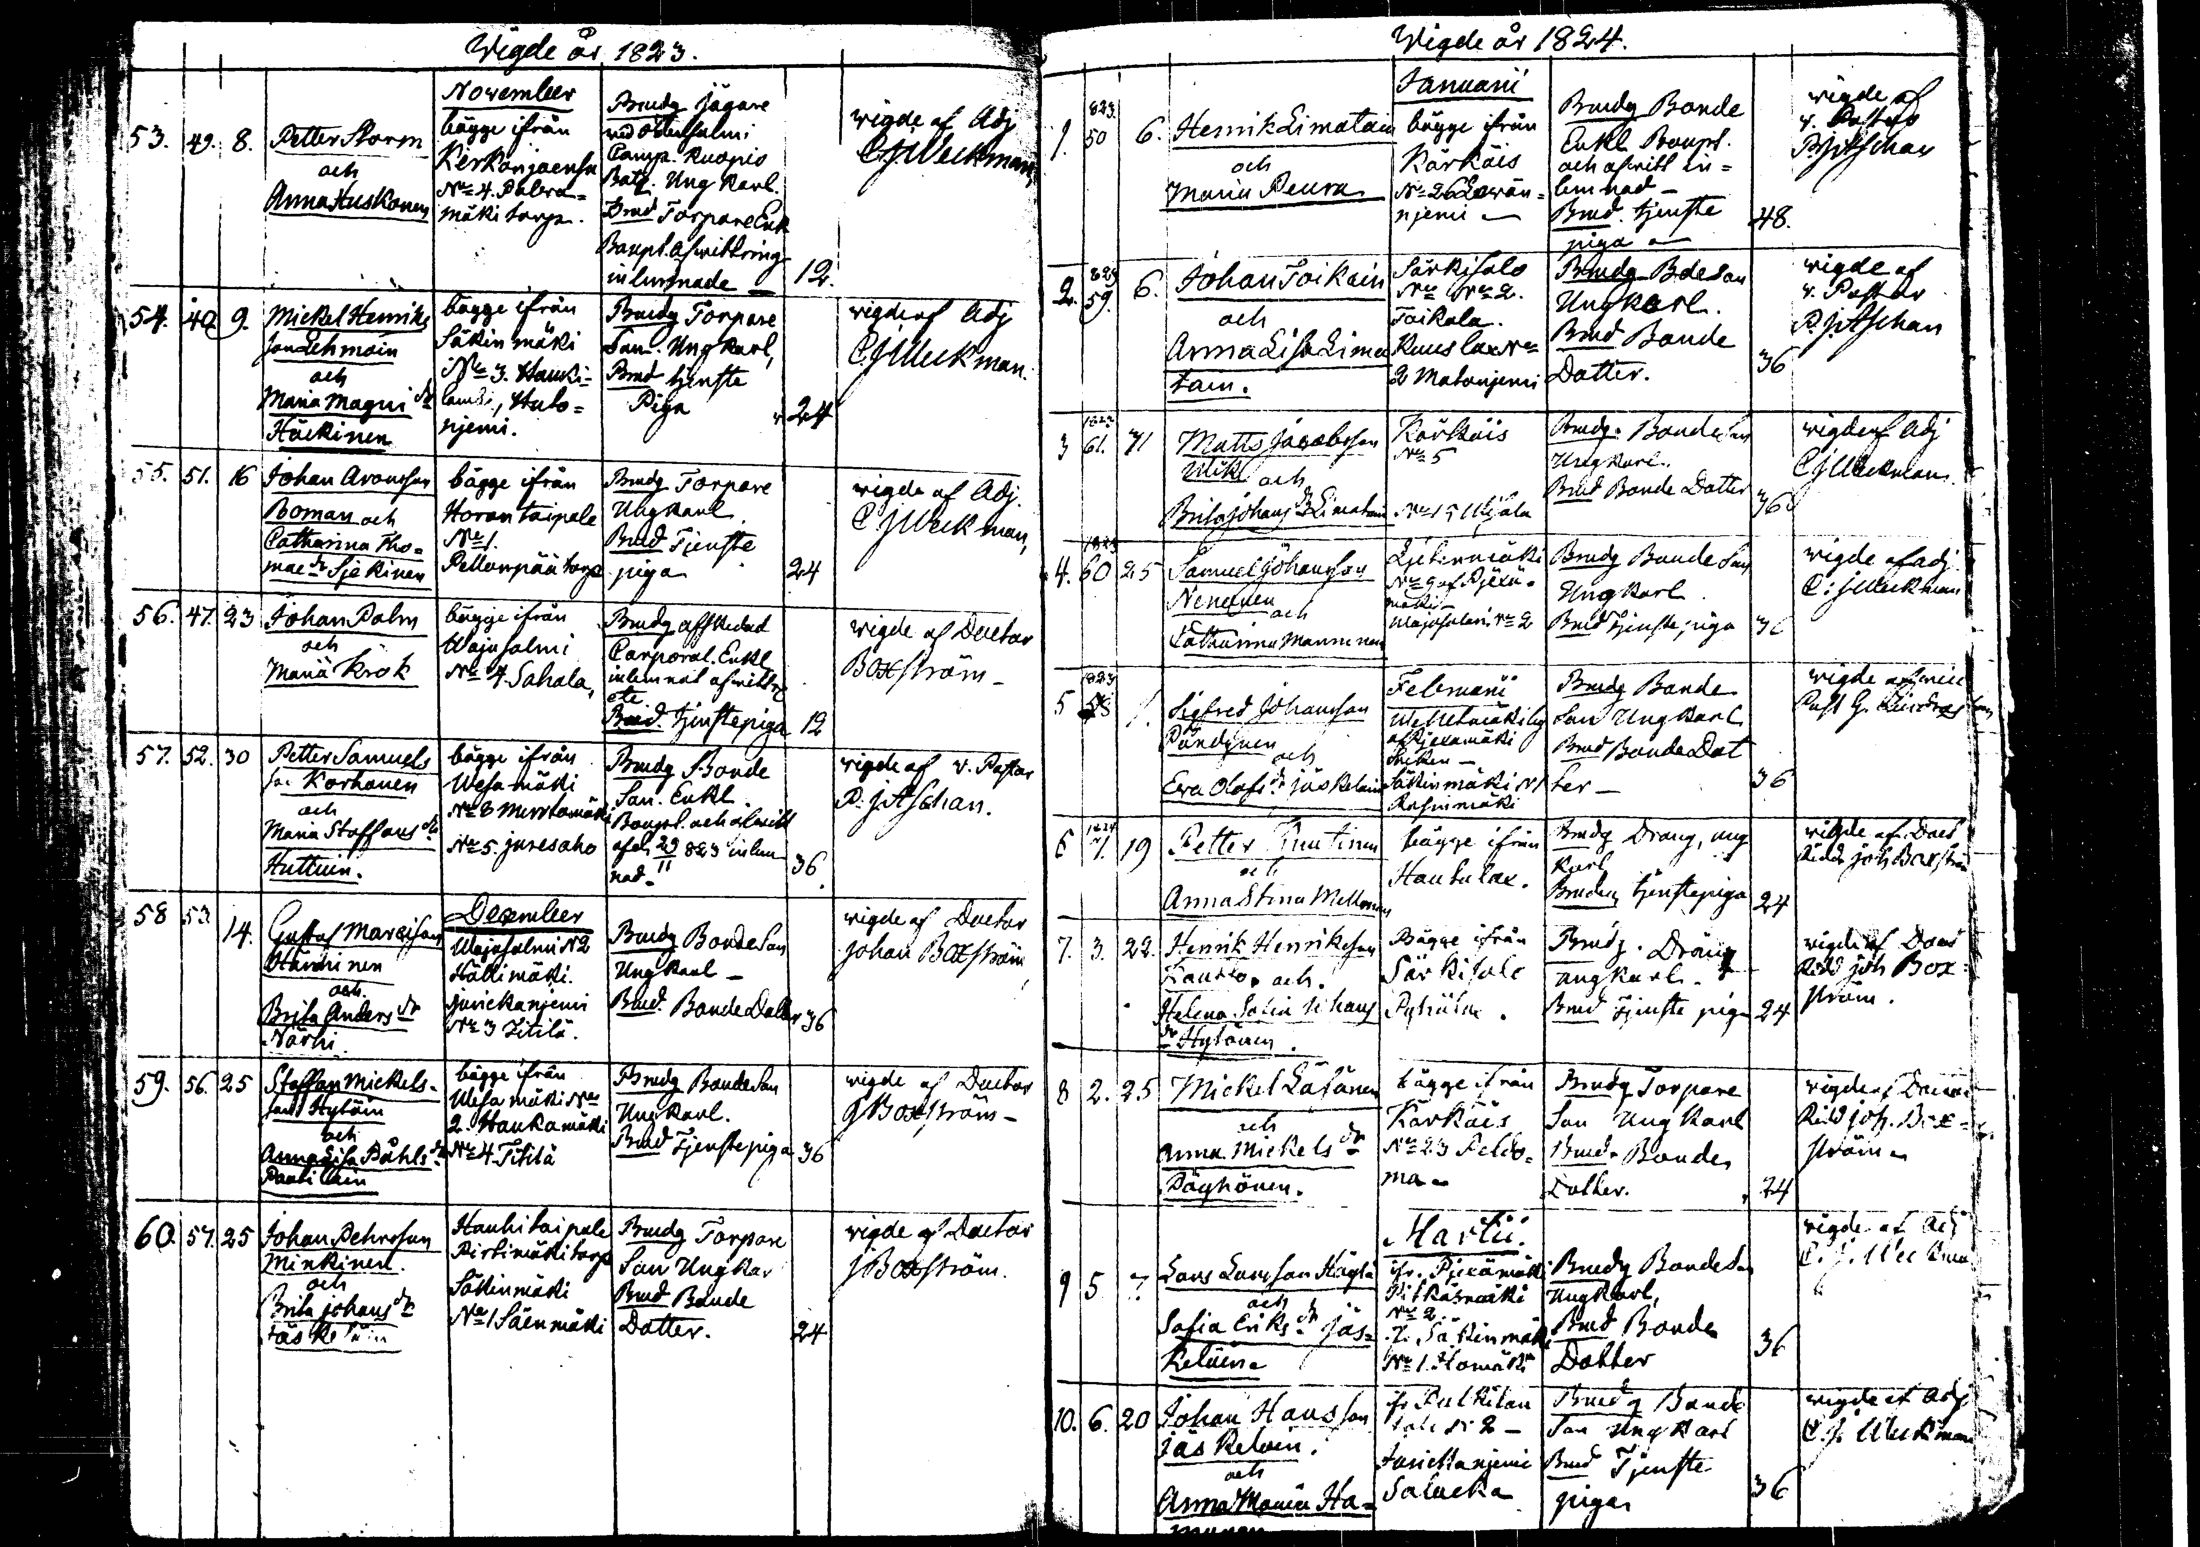 Wigde år 1823.
November
53. 49. 8. Petter Storm
och
Anna Huskonen
bägge ifrån
Kerkonjoensu
No 4.
mäki torp.
Brudg Jägare
Comp. Kuopio
Bat. Ung Karl.
Brud Torpare Enk
Boupt. afwittring
inlemnade
12.
wigde af Adj
C J Weckman,
54. 49 9. Mickel Henriks
son Lehmoin
och
Maria Magni dr
Häckinen
bägge ifrån
Säkinmäki
No 3. Hauki=
lambi, Huto=
njemi.
Brudg Torpare
Son. Ung Karl,
Brud tjenste
Piga
24
wigde af Adj
C J Weckman.
55. 51. 16 Johan Aronsson
Roman och
Catharina Tho=
mae dr Sjekinen
bägge ifrån
Horontaipale
No 1.
Pellonpää torp
Brudg Torpare
Ungkarl
Brud Tjenste
piga
24
wigde af Adj.
C J Weckman,
56. 47. 23 Johan Palm
och
Maria Krok
bägge ifrån
Wajasalmi
No 4 Sahala,
Brudg affskedad
Corporal. Enkl
inlemnat afwittr
etc
Brud. tjenstepiga
12
wigde af Doctor
Boxström
57. 52. 30 Petter Samuels
so. Korhonen
och
Maria Staffans dr
Huttuin.
bägge ifrån
Wesamäki
No 8
No 5. jusesaho
Brudg Bonde
Son. Enkl.
Boupt. och afwitt
af d. 29/11 823 inlem
nad
36.
wigde af v. Pastor
P. J Aschan.
December
58 53. 14. Gustaf Marcisson
och
Brita Anders dr
Närhi
Wajasalmi N2
Hällimäki.
Jurickanjemi
No 3 Titilä.
Brudg Bonde Son
Ungkarl
Brud. Bonde Dotter
36
wigde af Doctor
Johan Boxström
59. 56. 25 Staffan Mickels=
son Hytöin
och
Anna Lisa Påhls dr
bägge ifrån
Wesamäki No
2. Haukamäki
No 4 Titilä
Brudg Bonde Son
Ungkarl.
Brud Tjenstepiga
36
wigde af Doctor
J Boxström
60. 57. 25 Johan Pehrsson
Minkinen.
och
Brita Johans dr
Jäskeläin
Hauhitaipale
Pirtimäki torp
Säkinmäki
No 1 Säenmäki
Brudg Torpare
Son Ungkar
Brud Bonde
Dotter.
24
wigde af Doctor
J Boxström.
Wigde år 1824.
Januarii
1. 823 50 6. Henrik Limatain
och
Maria Peura
bägge ifrån
Kärkäis
No 26 Lewän=
njemi
Brudg Bonde
Enkl. Boupt.
och afwitt in=
lemnad
Brud. tjenste
piga
48.
wigde af
v. Pastor
P J Aschan
2. 823 59. 6. Johan Toikain
och
Anna Lisa Lima
tain.
Särkisalo
No 2.
Toikala.
Kuuslax No
2 Matonjemi
Brudg Bde Son
Ungkarl.
Brud Bonde
Dotter.
36
wigde af
v. Pastor
P. J Aschan
3 1823 61. 11 Matts Jacobsson
Wik och
Brita Johans dr Limatain
Kärkäis
No 5
No 15
Brudg. Bonde Son
Ungkarl.
Brud Bonde Dotter
36
wigde af Adj
C J Weckman
4. 1823 60 25 Samuel Johansson
Nenonen
och
Catharina Manninen
Brudg Bonde Son
Ungkarl.
Brud tjenstepiga
36
wigde af adj.
C: J Weckman
Februarii
5 1823 58 1. Sigfred Johansson
och
Ewa Olofs dr Jäskeläin
Säkinmäki N 1
Brudg Bonde
Son Ungkarl
Brud Bonde Dot
ter
36
6 1824 1. 19 Petter
och
Anna Stina
bägge ifrån
Hautalax.
Brudg Dräng, ung
karl
Bruden tjenstepiga
24
wigde af Doct
Ridd joh Boxström
7. 3. 22. Henrik Henriksson
och.
Helena Sofia Johans
dr Hytönen.
Bägge ifrån
Särkisalo
Brudg. Dräng
ungkarl.
Brud Tjenste piga
24
wigde af Doct
Ridd joh Box=
ström.
8 2. 25 Mickel Läsänen
och
Anna Mickels dr
Päyhönen.
bägge ifrån
Kärkäis
No 23 Peldo=
ma
Brudg Torpare
Son Ungkarl
Brud. Bonde
Dotter.
24
wigde af Doctor
Ridd joh. Box=
ström
Martii.
9 5 7. Lars Larsson
och
Sofia Eriks dr Jäs=
keläin
ifr. Pjexämäki
Pitkämäki
No 2
f. Säkinmäki
No 1.
Brudg Bonde Son
Ungkarl,
Brud Bonde
Dotter
36
wigde af Adj
C. J. Weckman
10. 6. 20 Johan Hansson
Jäskeläin.
och
Anna Maria Ha=
Jurickanjemi
Brudg Bonde
Son Ungkarl
Brud Tjenste
piga
36
wigde af Adj
C. J. Weckman